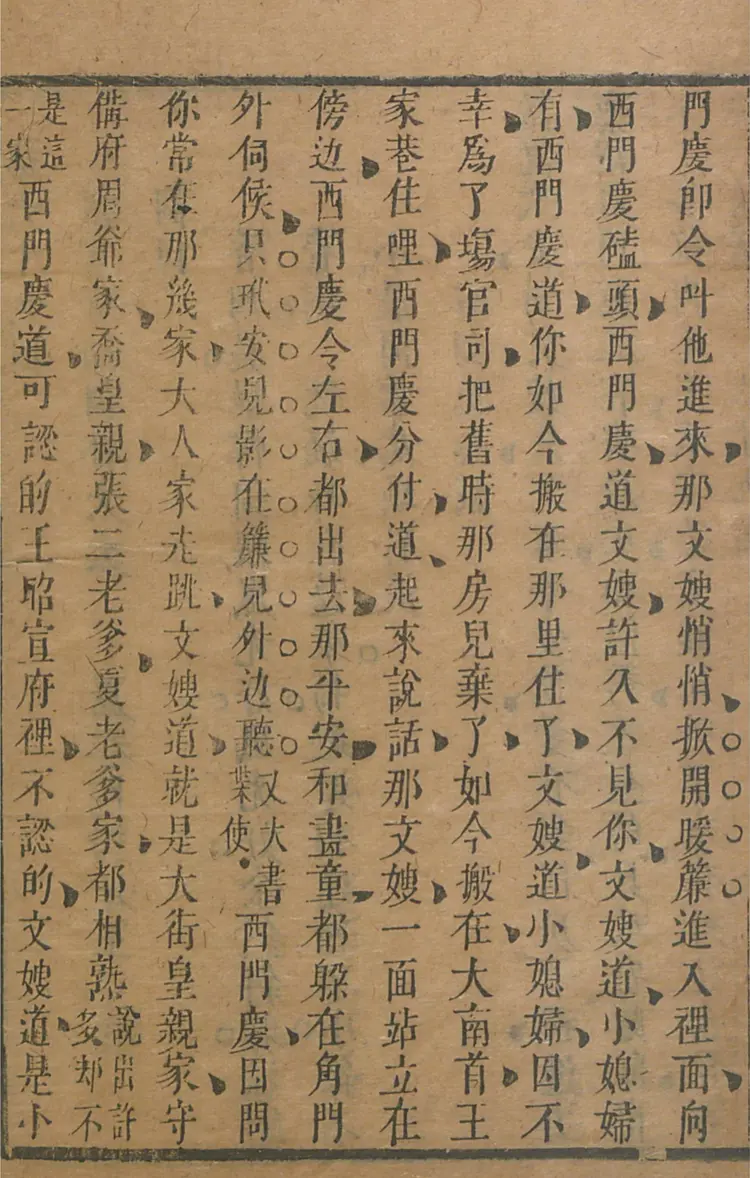 門慶即令叫他進來那文嫂悄悄掀開暖簾進入裡面向
西門慶磕頭西門慶道文嫂許久不見你文嫂道小媳婦
有西門慶道你如今搬在那里住了文嫂道小媳婦因不
幸爲了塲官司把舊時那房兒棄了如今搬在大南首王
家巷住哩西門慶分付道起來說話那文嫂一面站立在
傍边西門慶令左右都出去那平安和畫童都躱在角門
外伺候只玳安兒影在簾兒外边聽又大書葉使西門慶因問
你常在那幾家大人家走跳文嫂道就是大街皇親家守
備府周爺家喬皇親張二老爹夏老爹家都相熟說出許多却不
是這一家西門慶道可認的王昭宣府裡不認的文嫂道是小